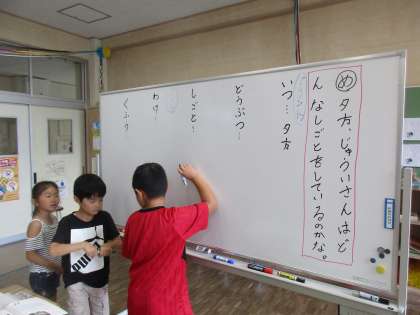 め
夕方、じゅういさんはど
んなしごとをしているのかな。
いつ…夕方
どうぶつ…
しごと…
わけ…
くふう